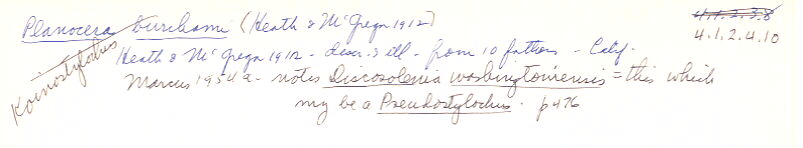 Planocera burchami (Heath & McGregor 1912)
4.1.2.3.8
4.1.2.4.10
Koinostylochus
Heath & McGregor 1912 - descr. & ill. - from 10 fathoms - Calif.
Marcus 1954a - notes Discosolenia washingtoniensis = this which
may be a Pseudostylochus. p476